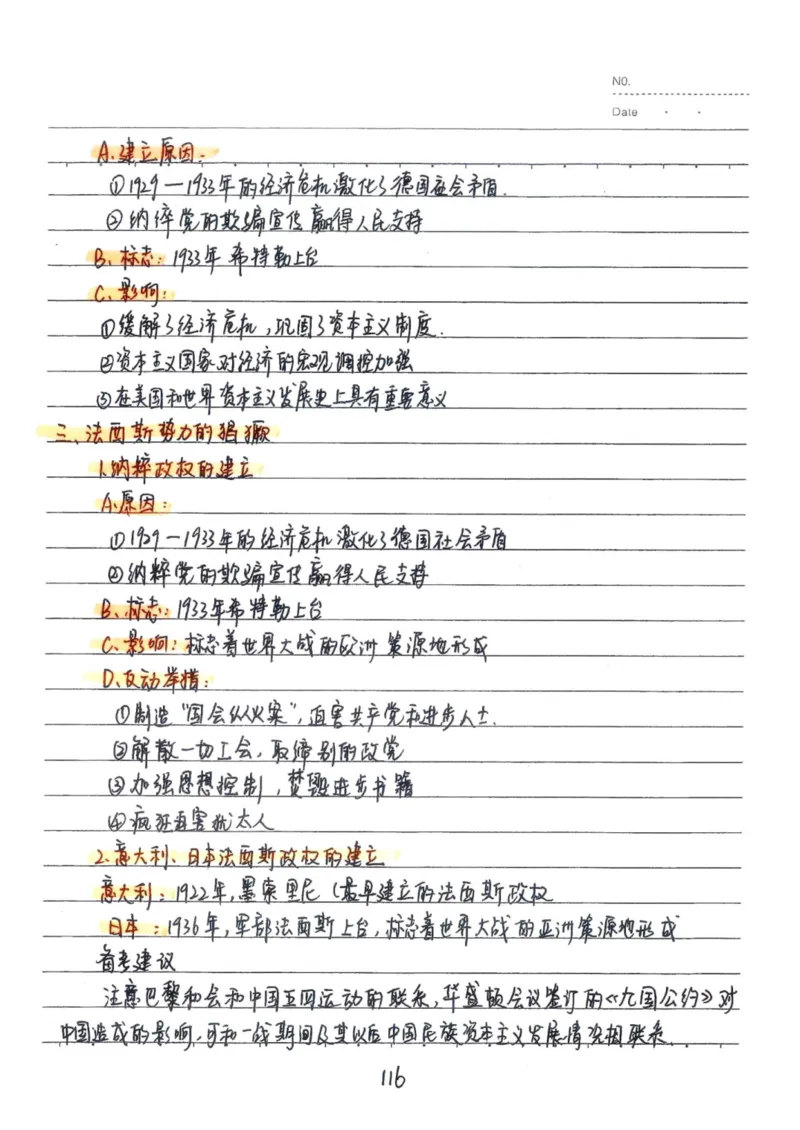 NO.
Date
A.建立原因:
①1929—1933年的经济危机激化了德国社会矛盾.
②纳粹党的欺骗宣传赢得人民支持
B、标志: 1933年 希特勒上台
C、影响:
①缓解了经济危机,巩固了资本主义制度.
②资本主义国家对经济的宏观调控加强
③在美国和世界资本主义发展史上具有重要意义
三、法西斯势力的猖獗
1.纳粹政权的建立
A.原因:
①1929—1933年的经济危机激化了德国社会矛盾
②纳粹党的欺骗宣传赢得人民支持
B、标志: 1933年希特勒上台
C、影响: 标志着世界大战的欧洲策源地形成
D、反动举措:
①制造“国会纵火案”,迫害共产党和进步人士.
②解散一切工会,取缔别的政党
③加强思想控制,焚毁进步书籍
④疯狂迫害犹太人
2.意大利、日本法西斯政权的建立
意大利: 1922年,墨索里尼(最早建立的法西斯政权
日本: 1936年,军部法西斯上台,标志着世界大战的亚洲策源地形成
备考建议
注意巴黎和会和中国五四运动的联系,华盛顿会议签订的《九国公约》对
中国造成的影响,可和一战期间及其以后中国民族资本主义发展情况相联系.
116